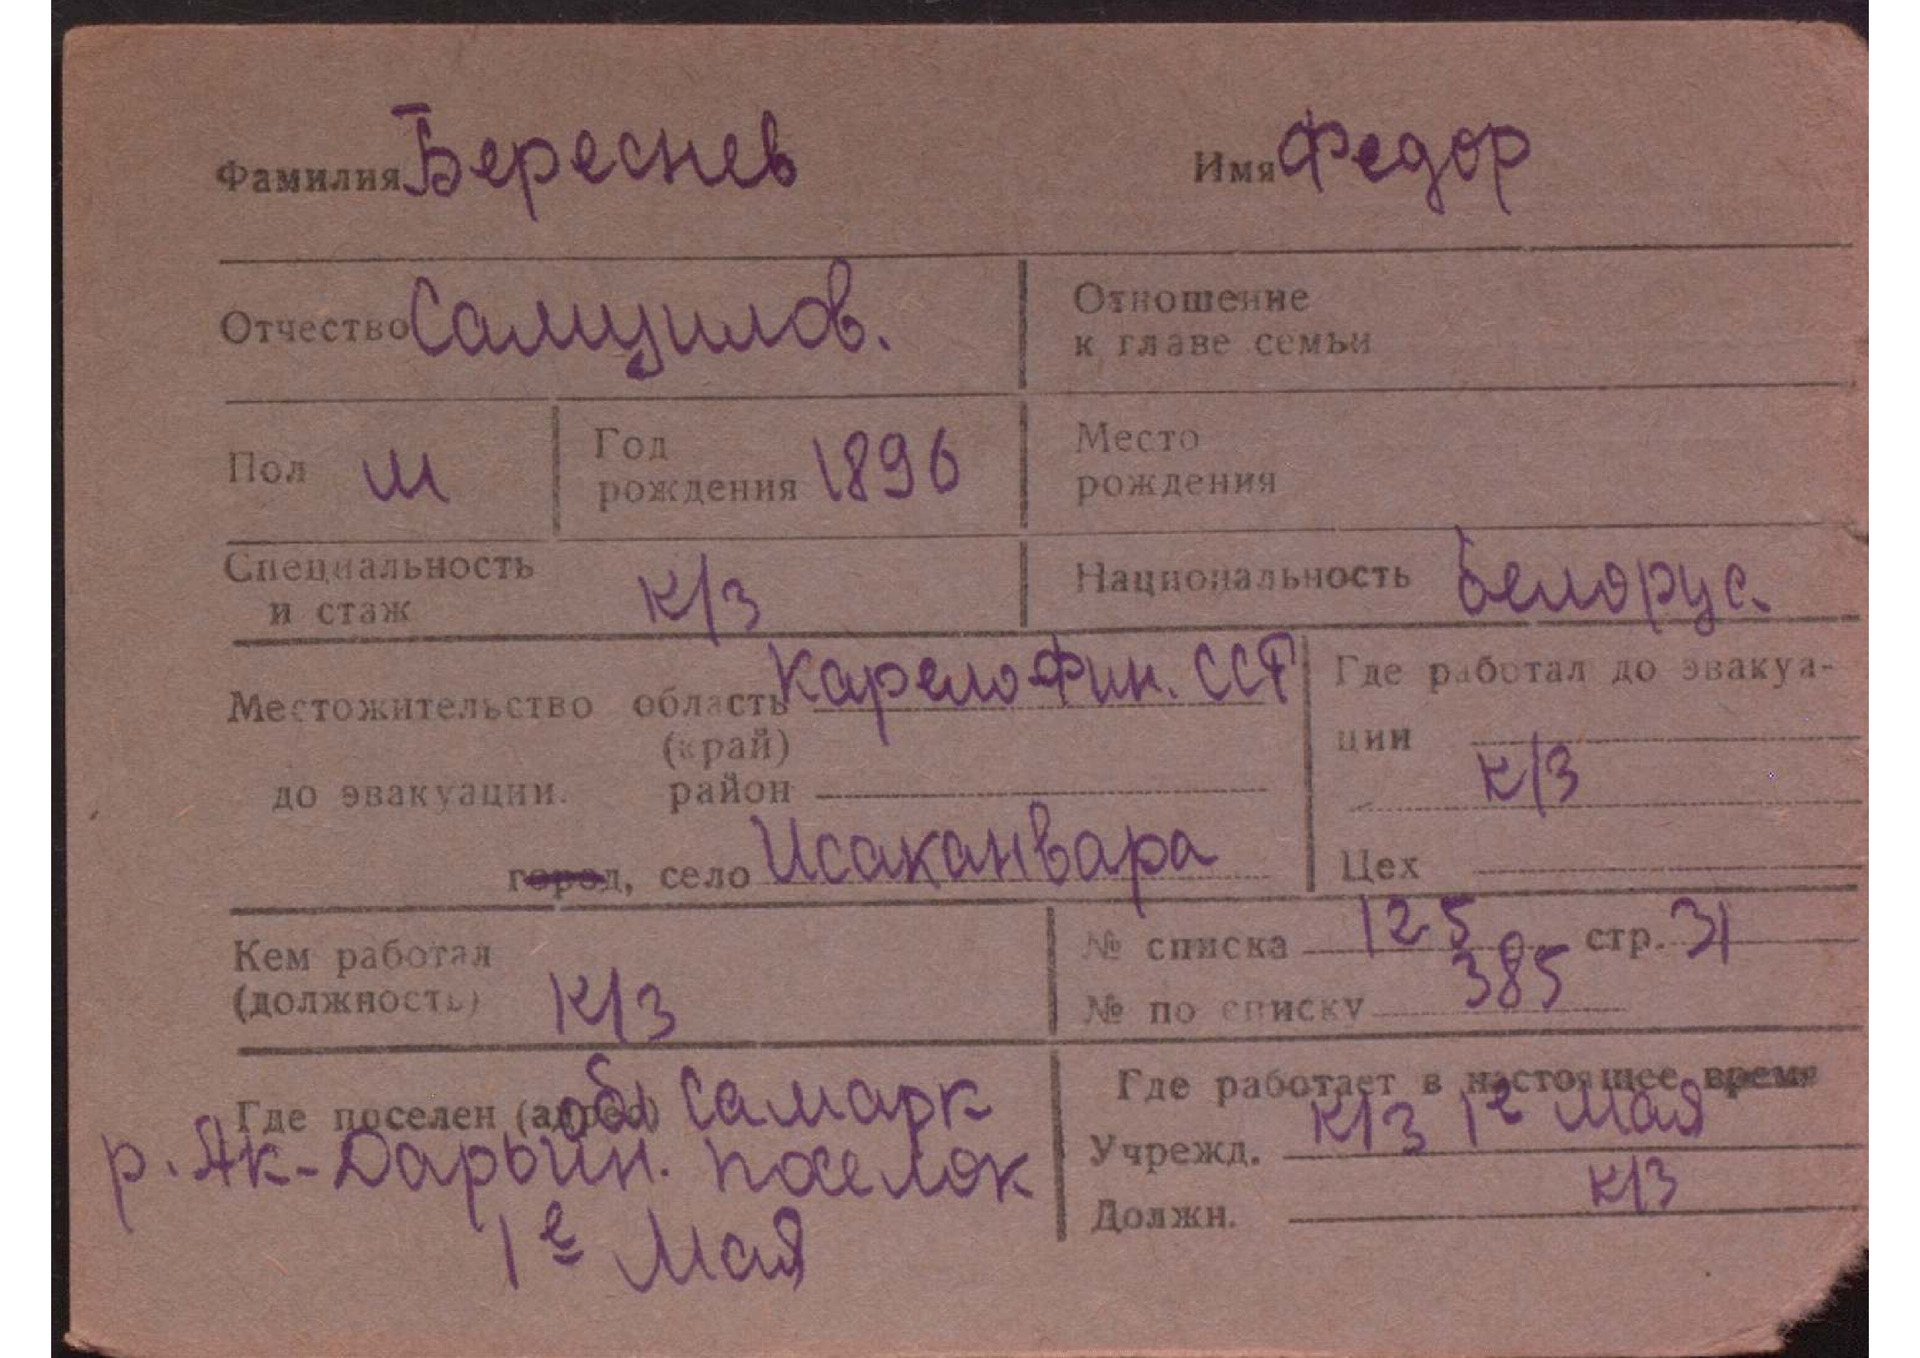 Фамилия Береснев Имя Федор
Отчество Самуилов. Отношение
к главе семьи
Пол м Год
рождения 1896 Место
рождения
Специальность
и стаж к/з Национальность белорус.
Местожительство область Карело Фин. ССР
(край)
до эвакуации. район
город, село Исаканвара
Где работал до эвакуа-
ции
к/з
Цех
Кем работал
(должность) к/з
№ списка 125 стр. 31
№ по списку 385
Где поселен (адрес) обл Самарк
р. Ак-Дарьин. поселок
1е Мая
Где работает в настоящее время
Учрежд. к/з 1е Мая
Должн. к/з